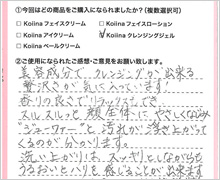 ①今回はどの商品をご購入になられましたか？（複数選択可）
□ Koiina フェイスクリーム □ Koiina フェイスローション
□ Koiina アイクリーム ☑ Koiina クレンジングジェル
□ Koiina ベールクリーム
②ご使用になられたご感想・ご意見をお願い致します。
美容成分で、クレンジングが出来る
贅沢さが気に入っています！
香りの良さでリラックスでき、
スルスルっと顔全体に、やさしくなじみ
"ジュワ〜"と汚れが浮き上がって
くるのが分かります。
洗い上がりは、スッキリとしながらも
うるおいとハリを感じることが出来ます